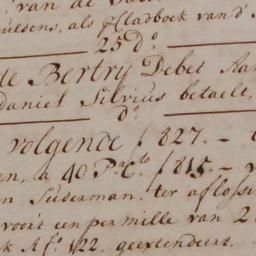 van de
uldens, als p Cladboek van d'
25 d°
de Bertry Debet Aan
daniel Silvius betaelt,
d°
volgence ƒ 827.-
en, a 40 P.r C.to ƒ 815.-
n Suderman. ter aflossi
voort een per mille van 2
k A f° 122. geextendeert.